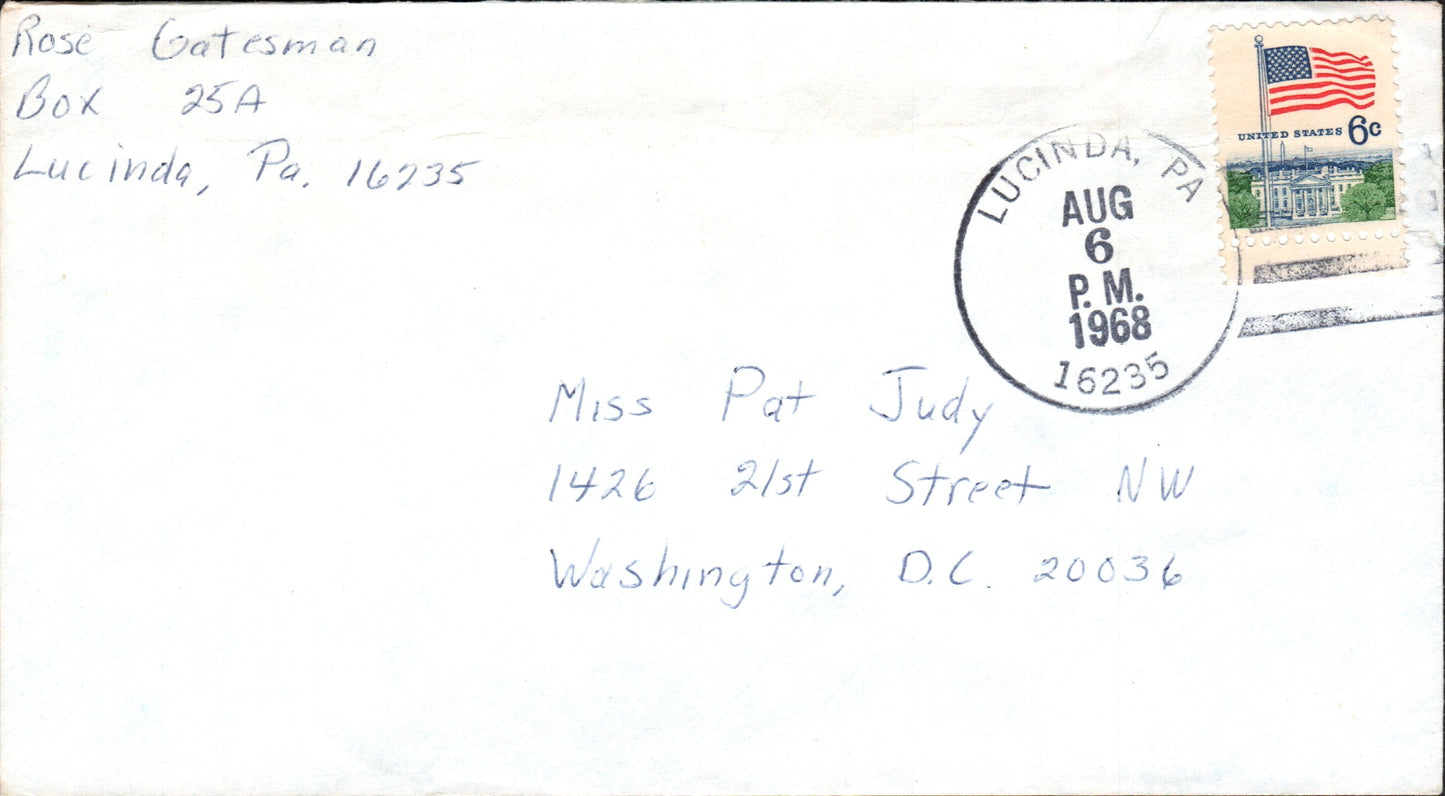 Rose Gatesman
Box 25A
Lucinda, Pa. 16235
UNITED STATES 6c
LUCINDA, PA
AUG
6
P. M.
1968
16235
Miss Pat Judy
1426 21st Street NW
Washington, D.C. 20036